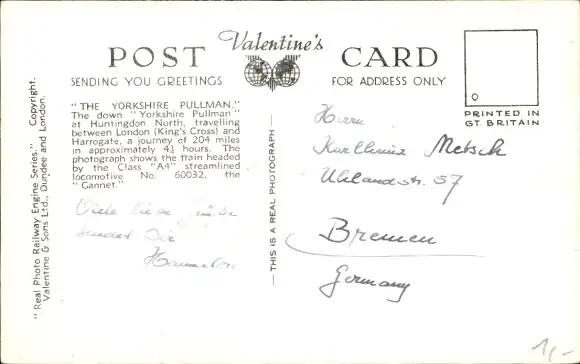 Valentine's
POST CARD
SENDING YOU GREETINGS
FOR ADDRESS ONLY
PRINTED IN
GT. BRITAIN
"Real Photo Railway Engine Series". Copyright.
Valentine & Sons Ltd., Dundee and London.
"THE YORKSHIRE PULLMAN."
The down "Yorkshire Pullman"
at Huntingdon North, travelling
between London (King's Cross) and
Harrogate, a journey of 204 miles
in approximately 4½ hours. The
photograph shows the train headed
by the Class "A4" streamlined
locomotive No. 60032, the
"Gannet."
Viele liebe Grüße
sendet Dir
— THIS IS A REAL PHOTOGRAPH —
Herrn
Karlheinz Metsch
Uhlandstr. 57
Bremen
Germany
1,-